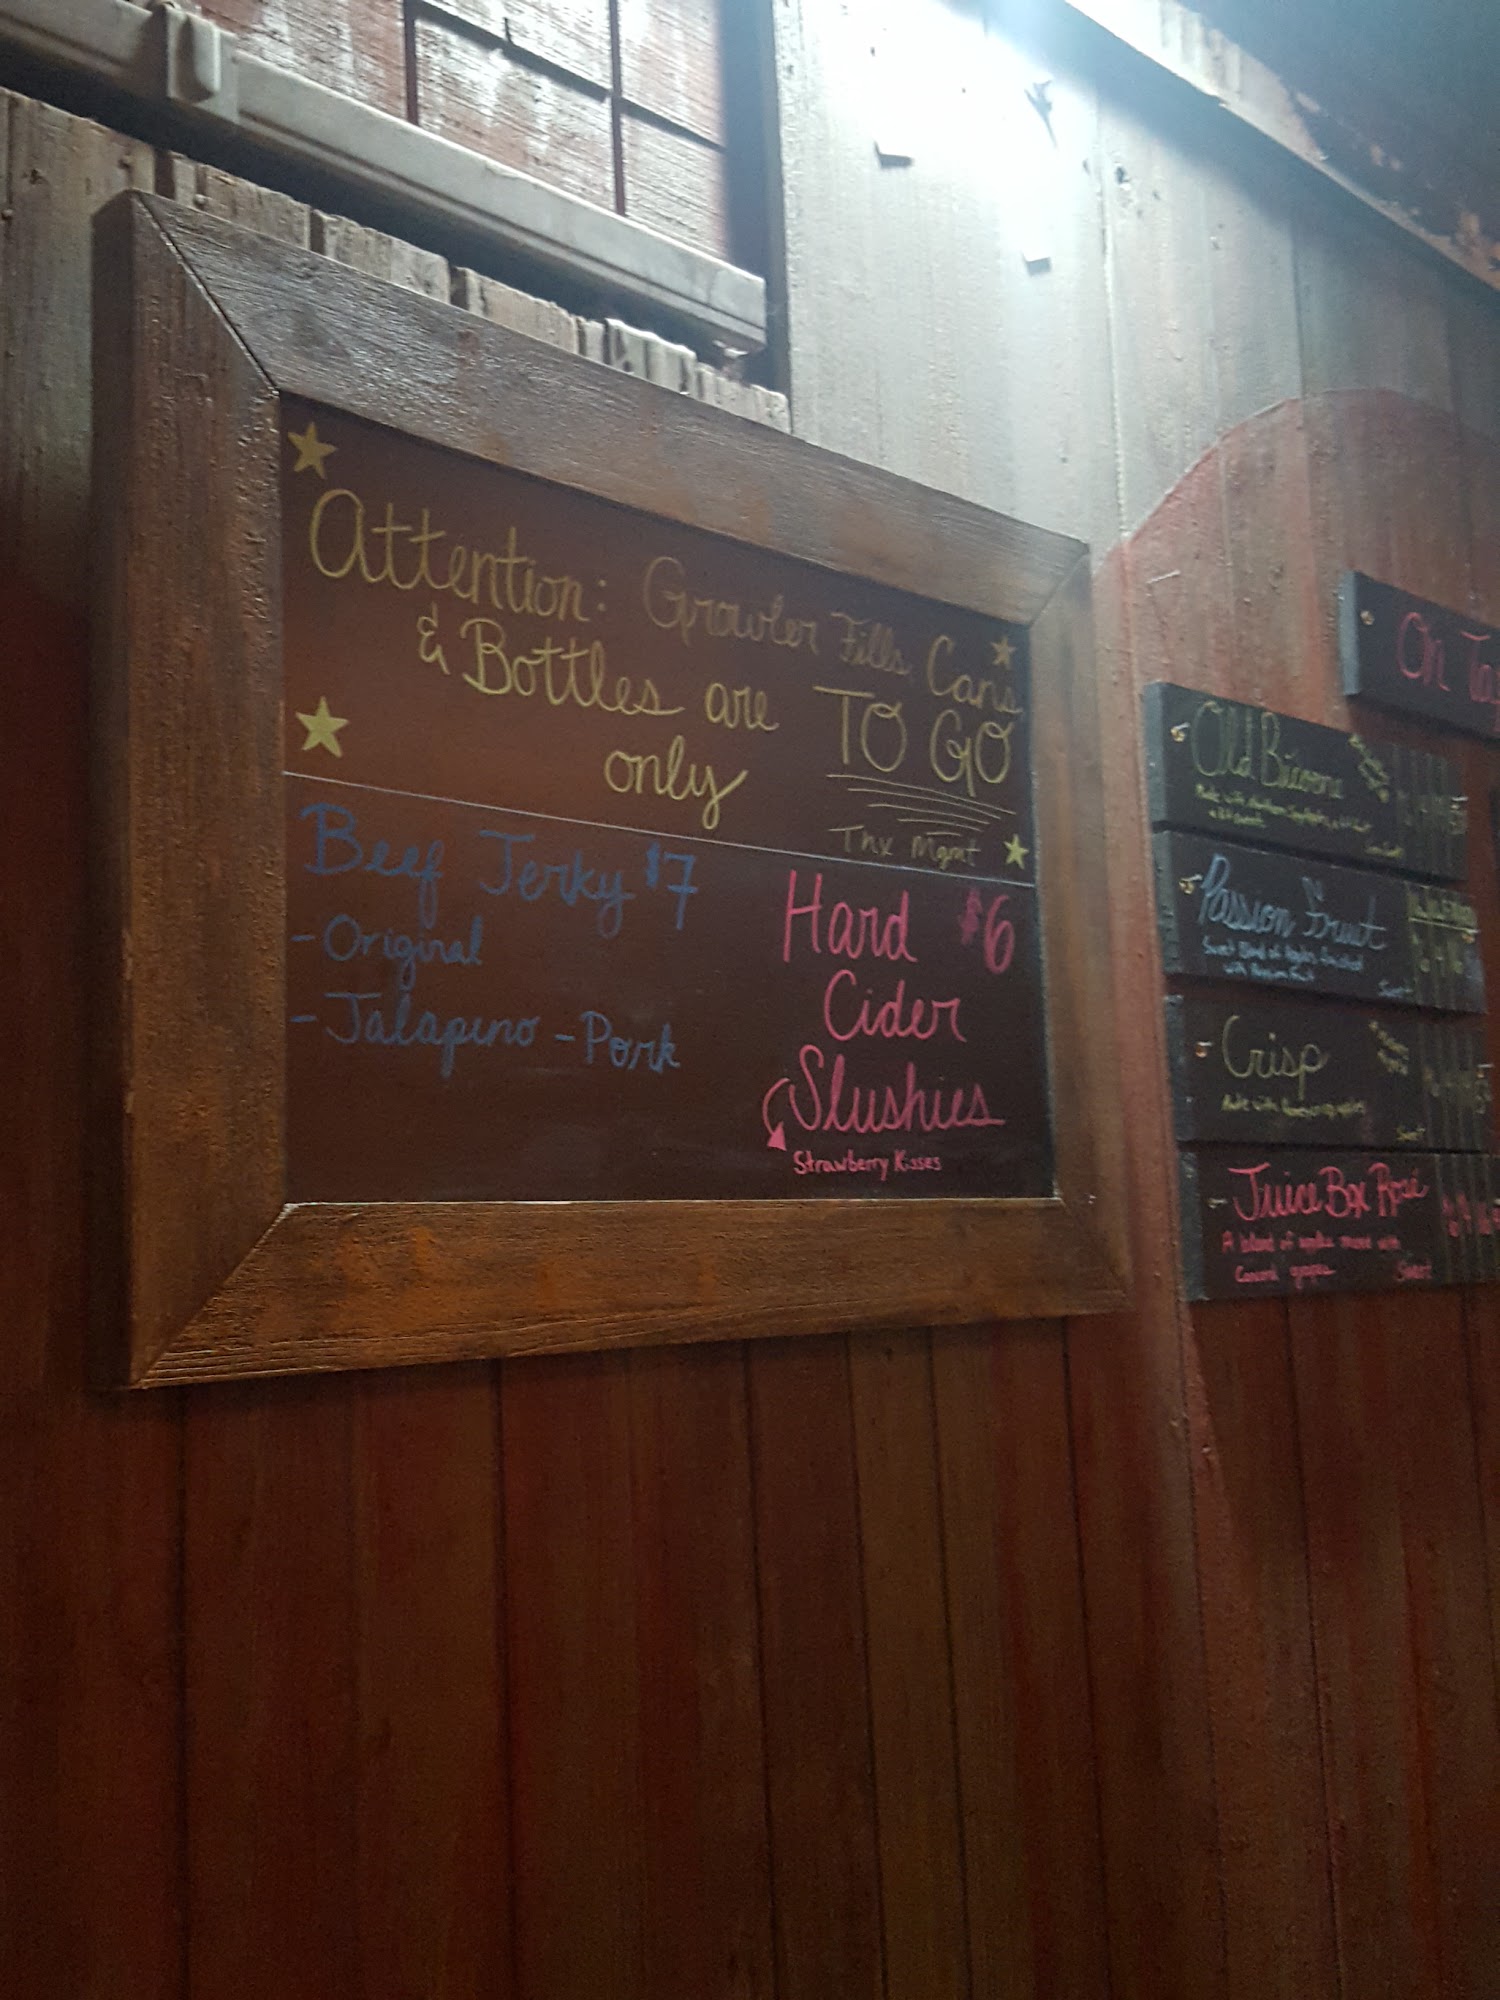 Attention: Growler Fills, Cans,
& Bottles are TO GO
only
Thx Mgmt
Beef Jerky $7
- Original
- Jalapino - Pork
Hard $6
Cider
Slushies
Strawberry Kisses
On Tap
Old
Made with
Passion Fruit
Sweet Blend of Apples
with Passion Fruit
Sweet
Crisp
Made with Honeycrisp apples
Sweet
Juice Box Rosé
A blend of apples made with
Concord grapes
Sweet